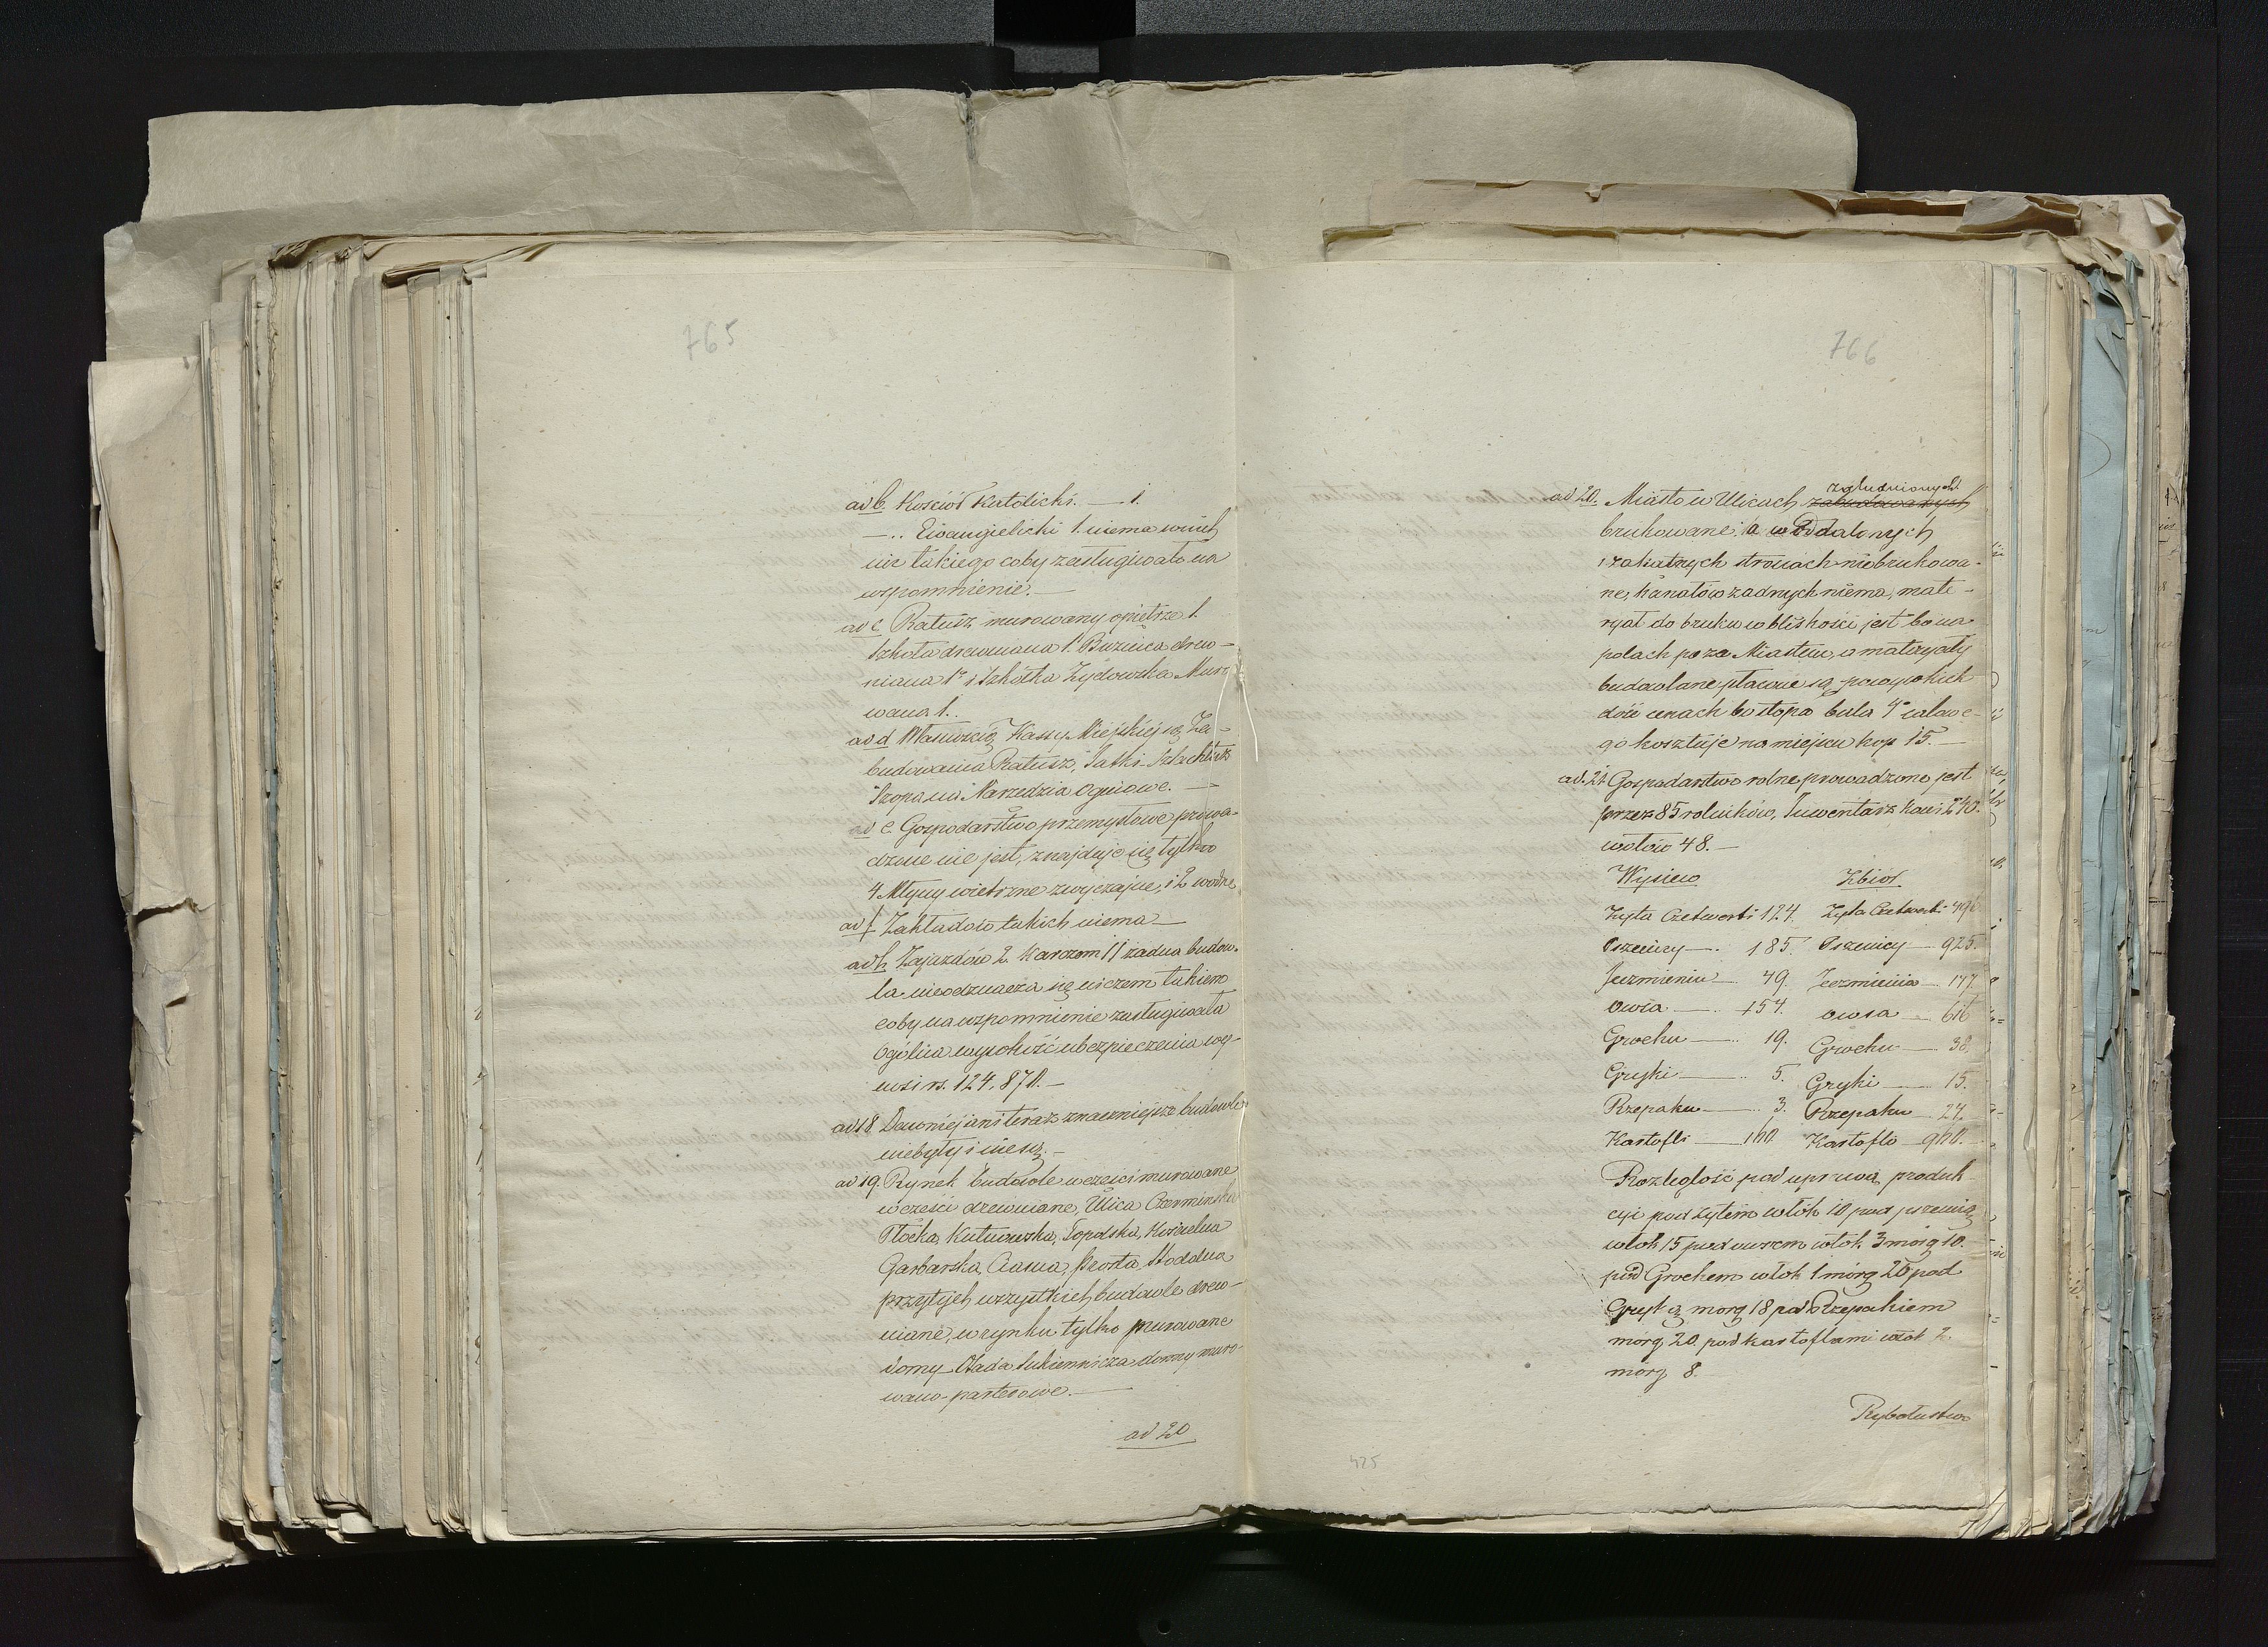 765
ad b. Kościoł Katolicki. — 1.
—.. Ewangielicki 1. niema w nich
nic takiego coby zasługiwało na
wspomnienie. —
ad c Ratusz murowany o piętrze 1.
Szkoła drewniana 1. Buznica drew-
niana 1. i Szkółka Żydowska Muro
wana 1..
ad d Własnością Kassy Miejskiej są Za-
budowania Ratusz, Jatki, Szlachtuz
Szopa na Narzędzia Ogniowe. —
ad e. Gospodarstwo przemysłowe prowa-
dzone nie jest, znajduje się tylko
4 Młyny wietrzne zwyczajne, i 2 wodne
ad f Zakładów takich niema —
ad h. Zajazdów 2. Karczem 11 żadna budow-
la nieodznacza się niczem takiem
coby na wspomnienie zasługiwała
Ogólna wysokość ubezpieczenia wy-
nosi rs. 124,870. —
ad 18. Dawniej ani teraz znaczniejsze budowle
niebyły i niesą. —
ad 19. Rynek budowle w części murowane
w części drewniane, Ulica Czermińska
Płocka, Kutnowska, Topolska, Kościelna
Garbarska, Prosta, Stodolna
przy tych wszystkich budowle drew-
niane, w rynku tylko murowane
domy Osada Sukiennicza domy muro-
wano-parterowe. —
ad 20
766
ad 20. Miasto w Ulicach zabudowanych zaludnionych
brukowane, a w Oddalonych
i zakątnych stronach niebrukowa-
ne, kanałów żadnych niema, mate-
ryał do bruku w bliskości jest bo na
polach poza Miastem, a materyały
budowlane są po wysokich
dość cenach bo stopa bala 4" calowe-
go kosztuje na miejscu kop 15. —
ad. 21. Gospodarstwo rolne prowadzone jest
przez 85 rolników, Inwentarz Koni 240.
wołów 48. —
Wysiew Zbiór
Żyta Czetwerti 124. Żyta Czetwerti 496
Pszenicy —. 185. Pszenicy — 925.
Jęczmieniu — 49. Jęczmienia — 147
Owsa —. 154. Owsa — 616
Grochu —.. 19. Grochu — 38.
Gryki —.. 5. Gryki — 15.
Rzepaku —.. 3. Rzepaku — 24.
Kartofli — 160 Kartofli — 960.
Rozległość pod uprawą produk-
cyi pod żytem włók 10 pod pszenicą
włók 15 pod owsem włók 3 morg 10.
pod Grochem włók 1 morg 25 pod
Gryką morg 18 pod Rzepakiem
morg 20. pod kartoflami włók 2.
morg 8.
Rybołustwo
425